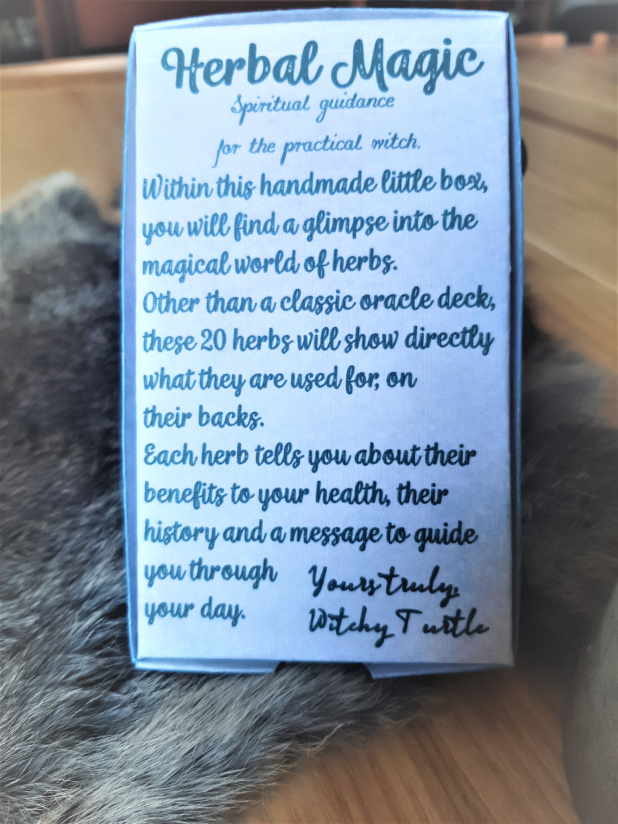 Herbal Magic
Spiritual guidance
for the practical witch.
Within this handmade little box,
you will find a glimpse into the
magical world of herbs.
Other than a classic oracle deck,
these 20 herbs will show directly
what they are used for, on
their backs.
Each herb tells you about their
benefits to your health, their
history and a message to guide
you through
your day.
Yours truly,
Witchy Turtle